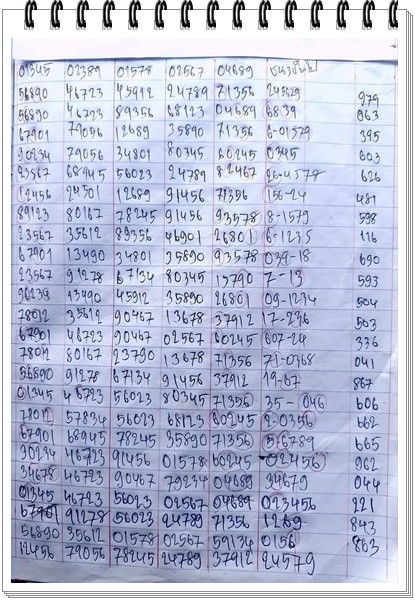 01345 02389 01578 02567 04689
56890 46723 45912 24789 71356 245689 979
56890 46723 89356 68123 04689 6839 063
67901 79056 12689 35890 71356 6-01579 395
90234 79056 34801 80345 60245 0345 603
93567 68945 56023 24789 82467 26-4578 626
12456 24301 12689 91456 71356 156-24 481
89123 80167 78245 91456 93578 8-1579 598
23567 35612 89356 46901 26801 6-1235 116
67901 13490 34801 35890 93578 039-18 690
23567 91278 67134 80345 13790 7-13 593
90234 13490 45912 35890 26801 09-1234 504
78012 35612 90467 13678 37912 17-236 503
67901 46723 90467 02567 60245 607-24 336
78012 80167 23790 13678 71356 71-0368 041
56890 91278 67134 91456 37912 19-67 867
01345 46723 56023 80345 71356 35-046 606
78012 57834 56023 68123 60245 2-0356 662
67901 68945 78245 35890 71356 056789 665
90234 46723 91456 01578 60245 02456 962
34678 46723 90467 79234 04689 34679 044
01345 46723 56023 02567 04689 023456 221
67901 91278 56023 24789 71356 1269 843
56890 35612 01578 02567 59134 0156 863
12456 79056 78245 24789 37912 24579